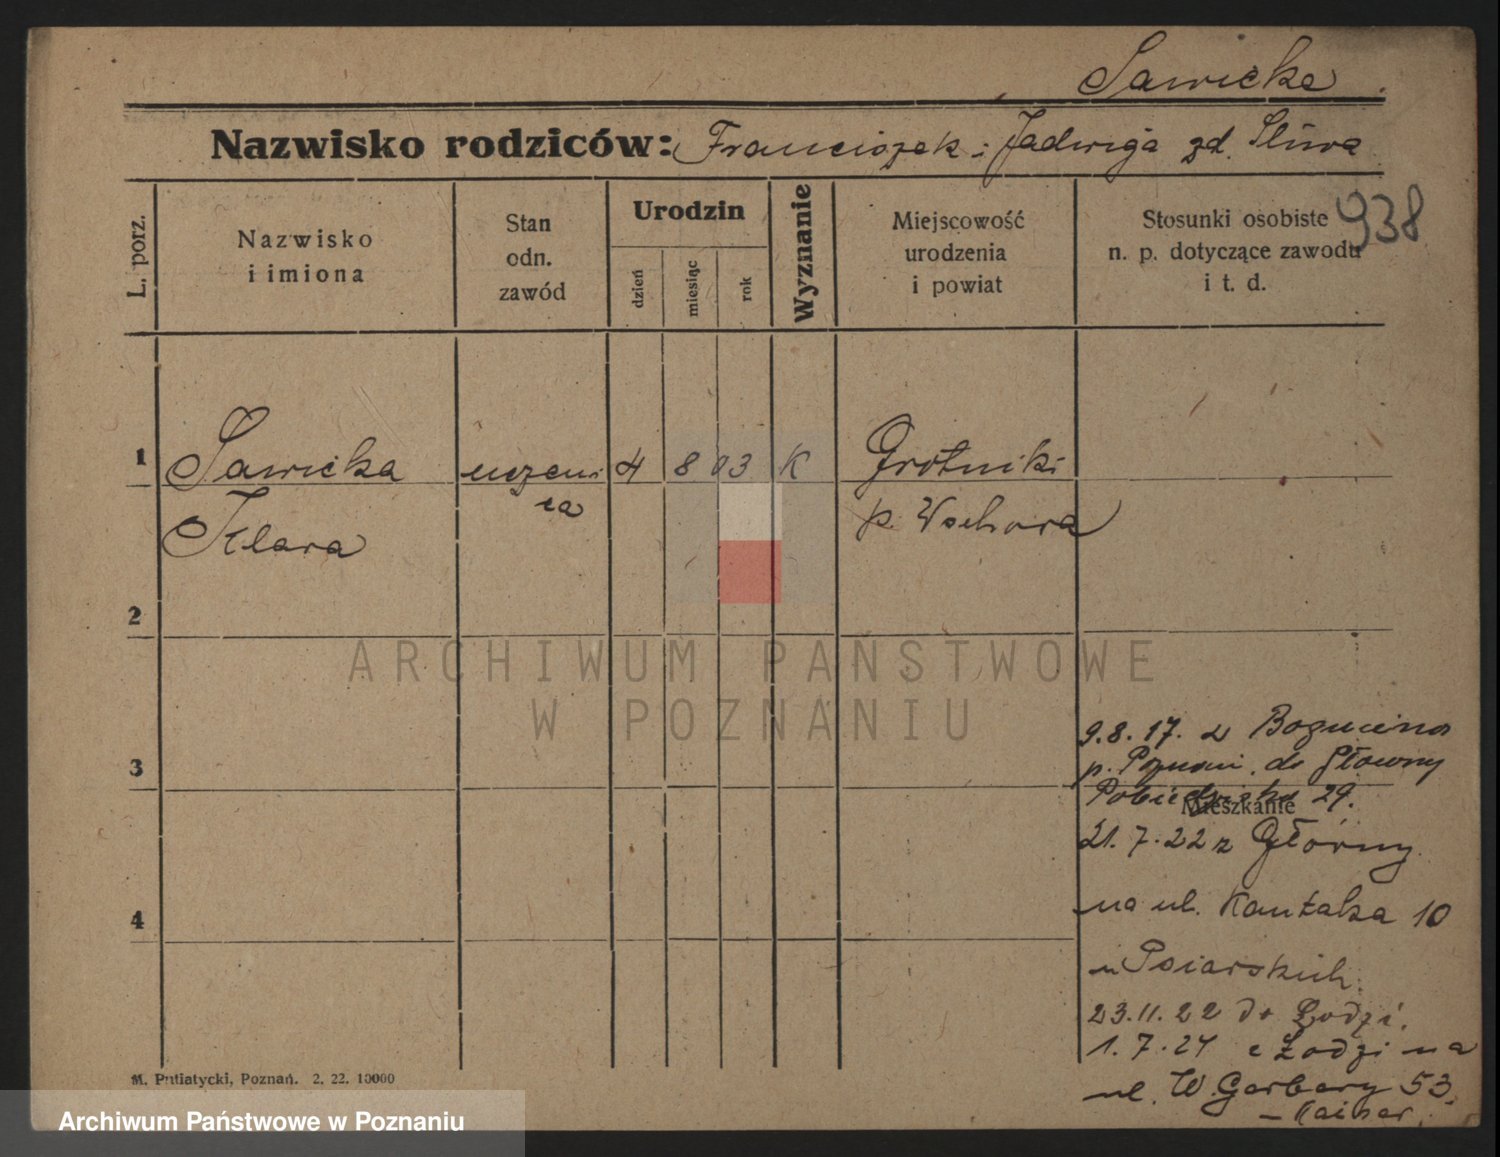 Sawicka
Nazwisko rodziców: Franciszek i Jadwiga zd. Śliwa
938
L. porz.
Nazwisko
i imiona
Stan
odn.
zawód
Urodzin
dzień
miesiąc
rok
Wyznanie
Miejscowość
urodzenia
i powiat
Stosunki osobiste
n. p. dotyczące zawodu
i t. d.
1
Sawicka
uczeni
ca
4 8 03 K
Grotniki
Klara
p. Wschowa
2
3
4
9.8.17. z Bogucina
p. Poznań. do Główny
Pobiedziska 29.
Mieszkanie
21.7.22 z Główny
na ul. Kantaka 10
u Psiarskich.
23.11.22 do Łodzi.
1.7.24 z Łodzi na
ul. W. Garbary 53.
– Kaiser.
M. Putiatycki, Poznań. 2. 22. 10000
ARCHIWUM PAŃSTWOWE
W POZNANIU
Archiwum Państwowe w Poznaniu